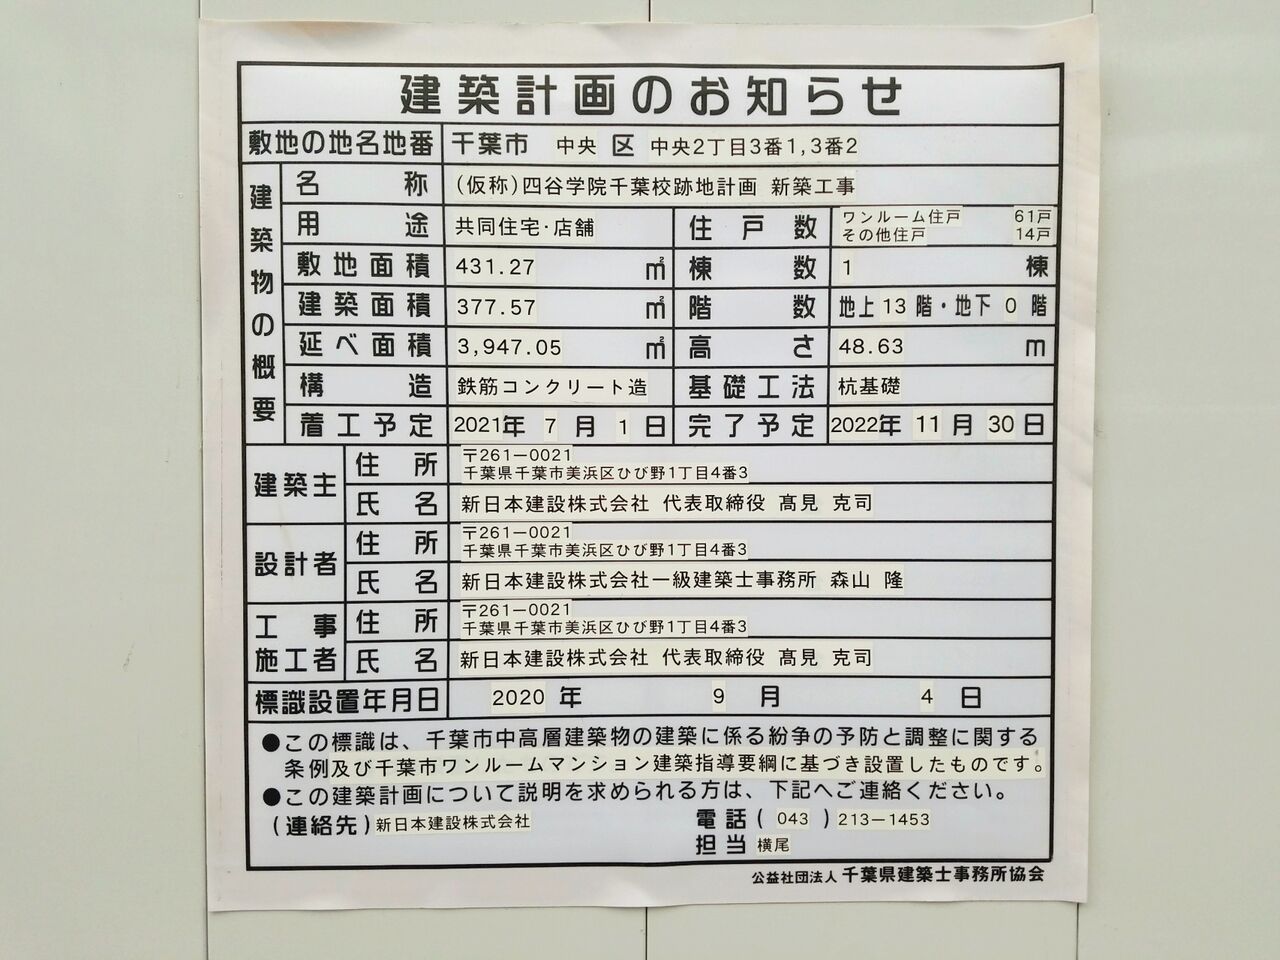 建築計画のお知らせ
敷地の地名地番 千葉市 中央 区 中央2丁目3番1,3番2
建築物の概要
名称 (仮称)四谷学院千葉校跡地計画 新築工事
用途 共同住宅・店舗 住戸数 ワンルーム住戸 61戸
その他住戸 14戸
敷地面積 431.27 ㎡ 棟数 1 棟
建築面積 377.57 ㎡ 階数 地上 13 階・地下 0 階
延べ面積 3,947.05 ㎡ 高さ 48.63 m
構造 鉄筋コンクリート造 基礎工法 杭基礎
着工予定 2021年 7 月 1 日 完了予定 2022年 11 月 30 日
建築主 住所 〒261-0021
千葉県千葉市美浜区ひび野1丁目4番3
氏名 新日本建設株式会社 代表取締役 髙見 克司
設計者 住所 〒261-0021
千葉県千葉市美浜区ひび野1丁目4番3
氏名 新日本建設株式会社一級建築士事務所 森山 隆
工事施工者 住所 〒261-0021
千葉県千葉市美浜区ひび野1丁目4番3
氏名 新日本建設株式会社 代表取締役 髙見 克司
標識設置年月日 2020 年 9 月 4 日
●この標識は、千葉市中高層建築物の建築に係る紛争の予防と調整に関する
条例及び千葉市ワンルームマンション建築指導要綱に基づき設置したものです。
●この建築計画について説明を求められる方は、下記へご連絡ください。
(連絡先)新日本建設株式会社 電話( 043 )213-1453
担当 横尾
公益社団法人 千葉県建築士事務所協会